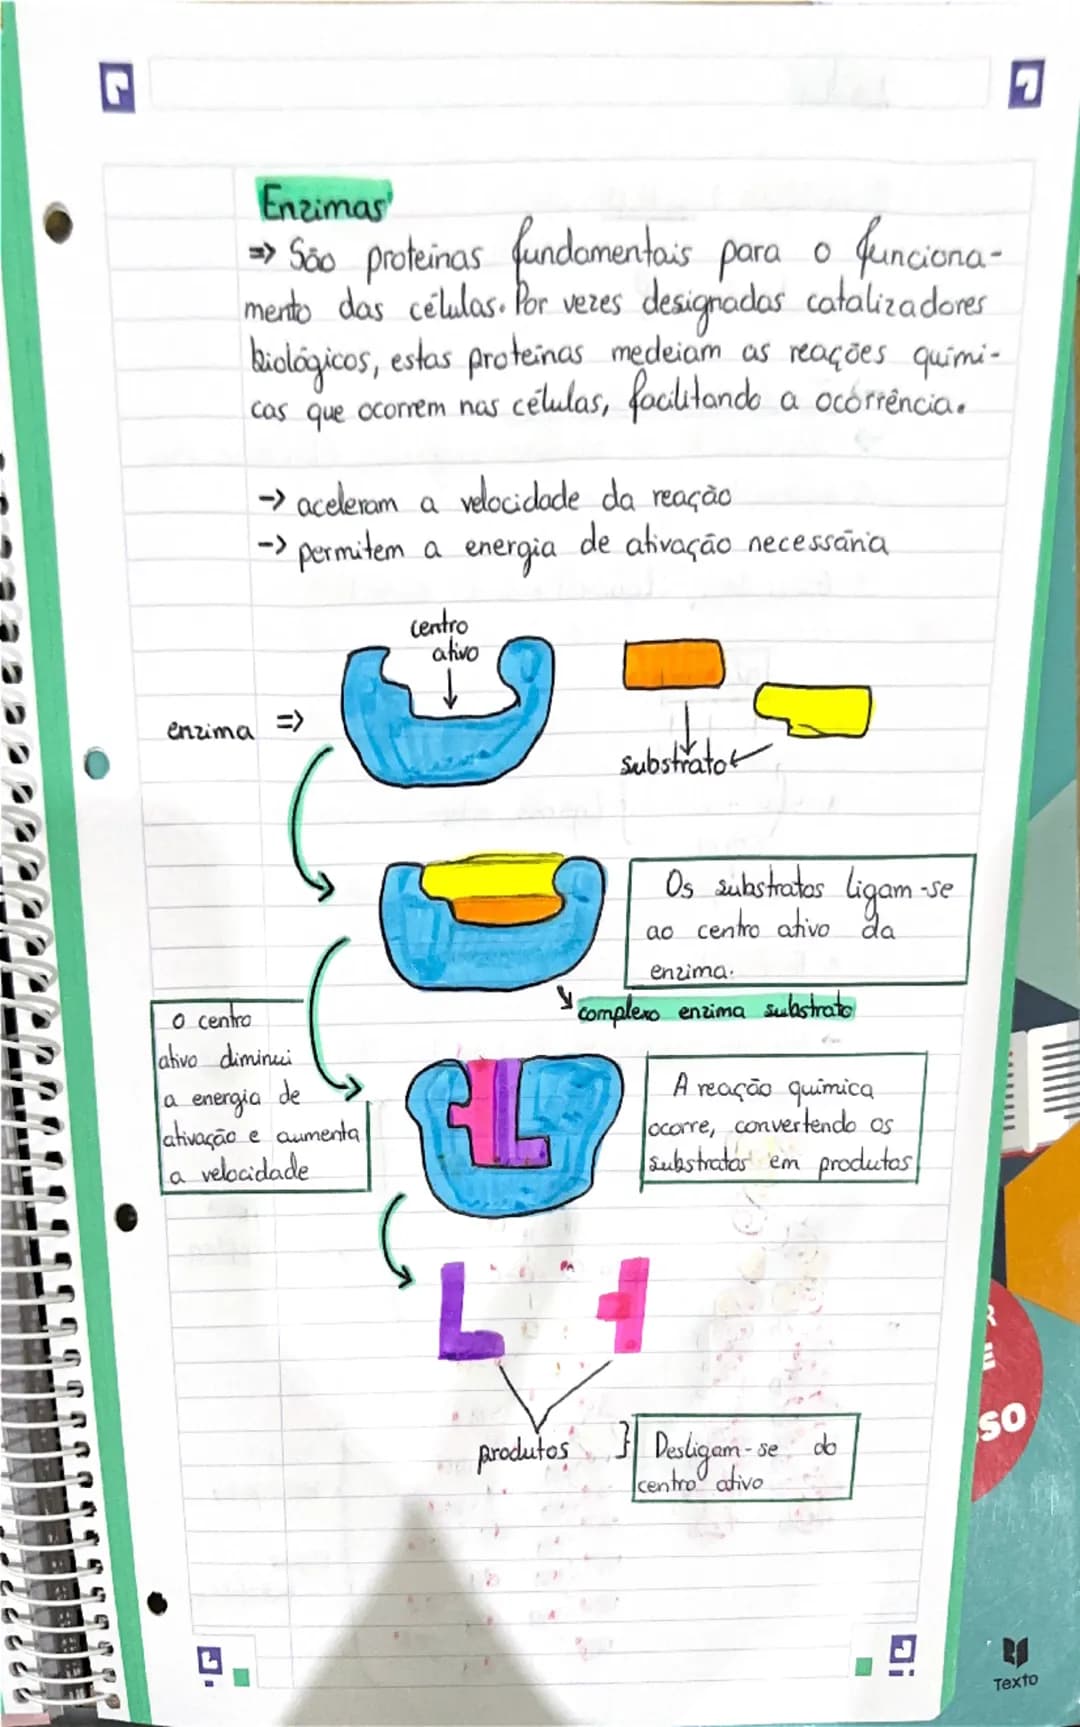 Enzimas
=> São proteínas fundamentais para o funciona-
mento das células. Por vezes designadas catalizadores
biológicos, estas proteínas medeiam as reações quími-
cas que ocorrem nas células, facilitando a ocorrência.
-> aceleram a velocidade da reação
-> permitem a energia de ativação necessária
centro
ativo
enzima =>
substrato
Os substratos ligam-se
ao centro ativo da
enzima.
complexo enzima substrato
O centro
ativo diminui
a energia de
ativação e aumenta
a velocidade
A reação química
ocorre, convertendo os
substratos em produtos
produtos } Desligam-se do
centro ativo
R
E
SO
Texto